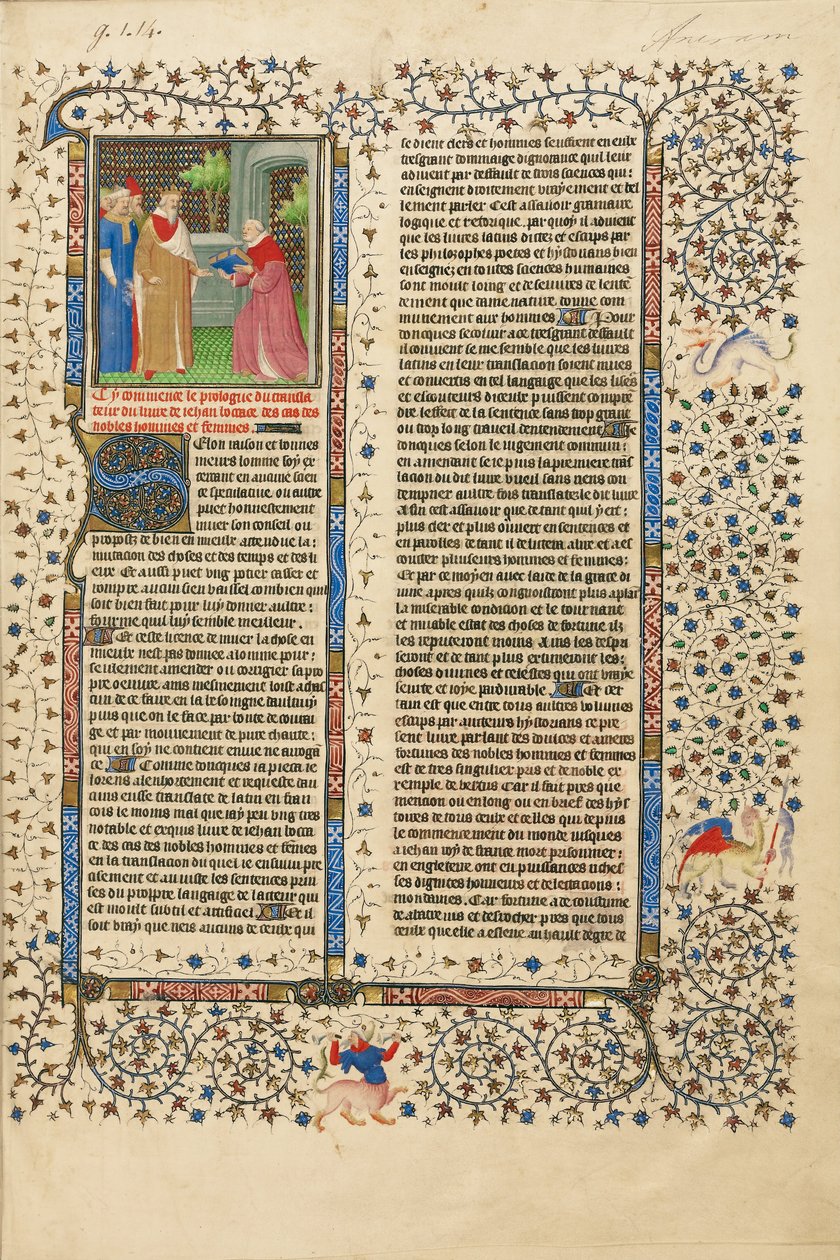 g. 1. 14.
Cy commence le prologue du transla
teur du livre de iehan bocace des cas des
nobles hommes et femmes.
Selon raison et bonnes
meurs lomme soy ex
cercant en aucune scien
ce speculative ou autre
puet honnestement
muer son conseil ou
propostz de bien en mieulx attendue la
mutacion des choses et des temps et des li
eux Et aussi puet ung potier casser et
rompre aucun sien vaissel combien quil
soit bien fait pour luy donner aultre
fourme qui luy semble meilleur.
Et ceste licence de muer la chose en
mieulx nest pas donnee a lomme pour
seulement amender ou corrigier sa pro
pre oeuvre ains mesmement loist a chas
cun de ce faire en la besoingne daultruy
puis que on le face par bonte de coura
ge et par mouvement de pure charite
qui en soy ne contient envie ne arroga
ce Comme doncques ia pieca ie
a lenhortement et requeste dau
cuns eusse translate de latin en fran
cois le moins mal que iay peu ung tres
notable et exquis livre de iehan bocca
ce des cas des nobles hommes et femes
en la translacion du quel ie ensuivi pre
cisement et au iuste les sentences prin
ses du propre langaige de lacteur qui
est moult subtil et artificiel Et il
soit vray que neis aucuns de ceulx qui
se dient clers et hommes seuffrent en eulx
tresgrant dommaige dignorance quil leur
advient par deffault de trois sciences qui
enseignent droitement vrayement et bel
lement parler Cest assavoir gramaire
logique et retorique. par quoy il advient
que les livres latins dictez et escrips par
les philozophes poetes et hystorians bien
enseignez en toutes sciences humaines
sont moult loing et desevres de lente
dement que dame nature donne com
munement aux hommes Pour
doncques secourir a ce tresgrant deffault
il convient se me semble que les livres
latins en leur translation soient mues
et convertis en tel langaige que les lises
et escouteurs diceulx puissent compre
dre leffect de la sentence sans trop grant
ou trop long traveil dentendement Je
doncques selon le iugement commun
en amendant se ie puis la premiere tras
lacion du dit livre vueil sans riens con
tempner aultre fois translater le dit livre
A fin cest assavoir que de tant quil yert
plus cler et plus ouvert en sentences et
en parolles de tant il delitera a lire et a es
couter pluseurs hommes et femmes
Et par ce moyen avec laide de la grace di
vine apres quilz congnoistront plus aplai
la miserable condicion et le tournant
et muable estat des choses de fortune ilz
les reputeront moins Ains les despri
seront et de tant plus extimeront les
choses divines et celestes qui ont vraye
seurte et ioye pardurable Et cer
tain est que entre tous aultres volumes
escrips par aucteurs hystorians ce pre
sent livre parlant des doulces et ameres
fortunes des nobles hommes et femmes
est de tres singulier pris et de noble ex
remple de vertus Car il fait pres que
mencion ou en long ou en brief des hys
toires de tous ceulx et celles qui depuis
le commencement du monde iusques
a iehan roy de france mort prisonnier
en engleterre ont eu puissances riches
ses dignites honneurs et delectacions
mondaines. Car fortune a de coustume
de abatre ius et desrochier pres que tous
ceulx que elle a esleve au hault degre de